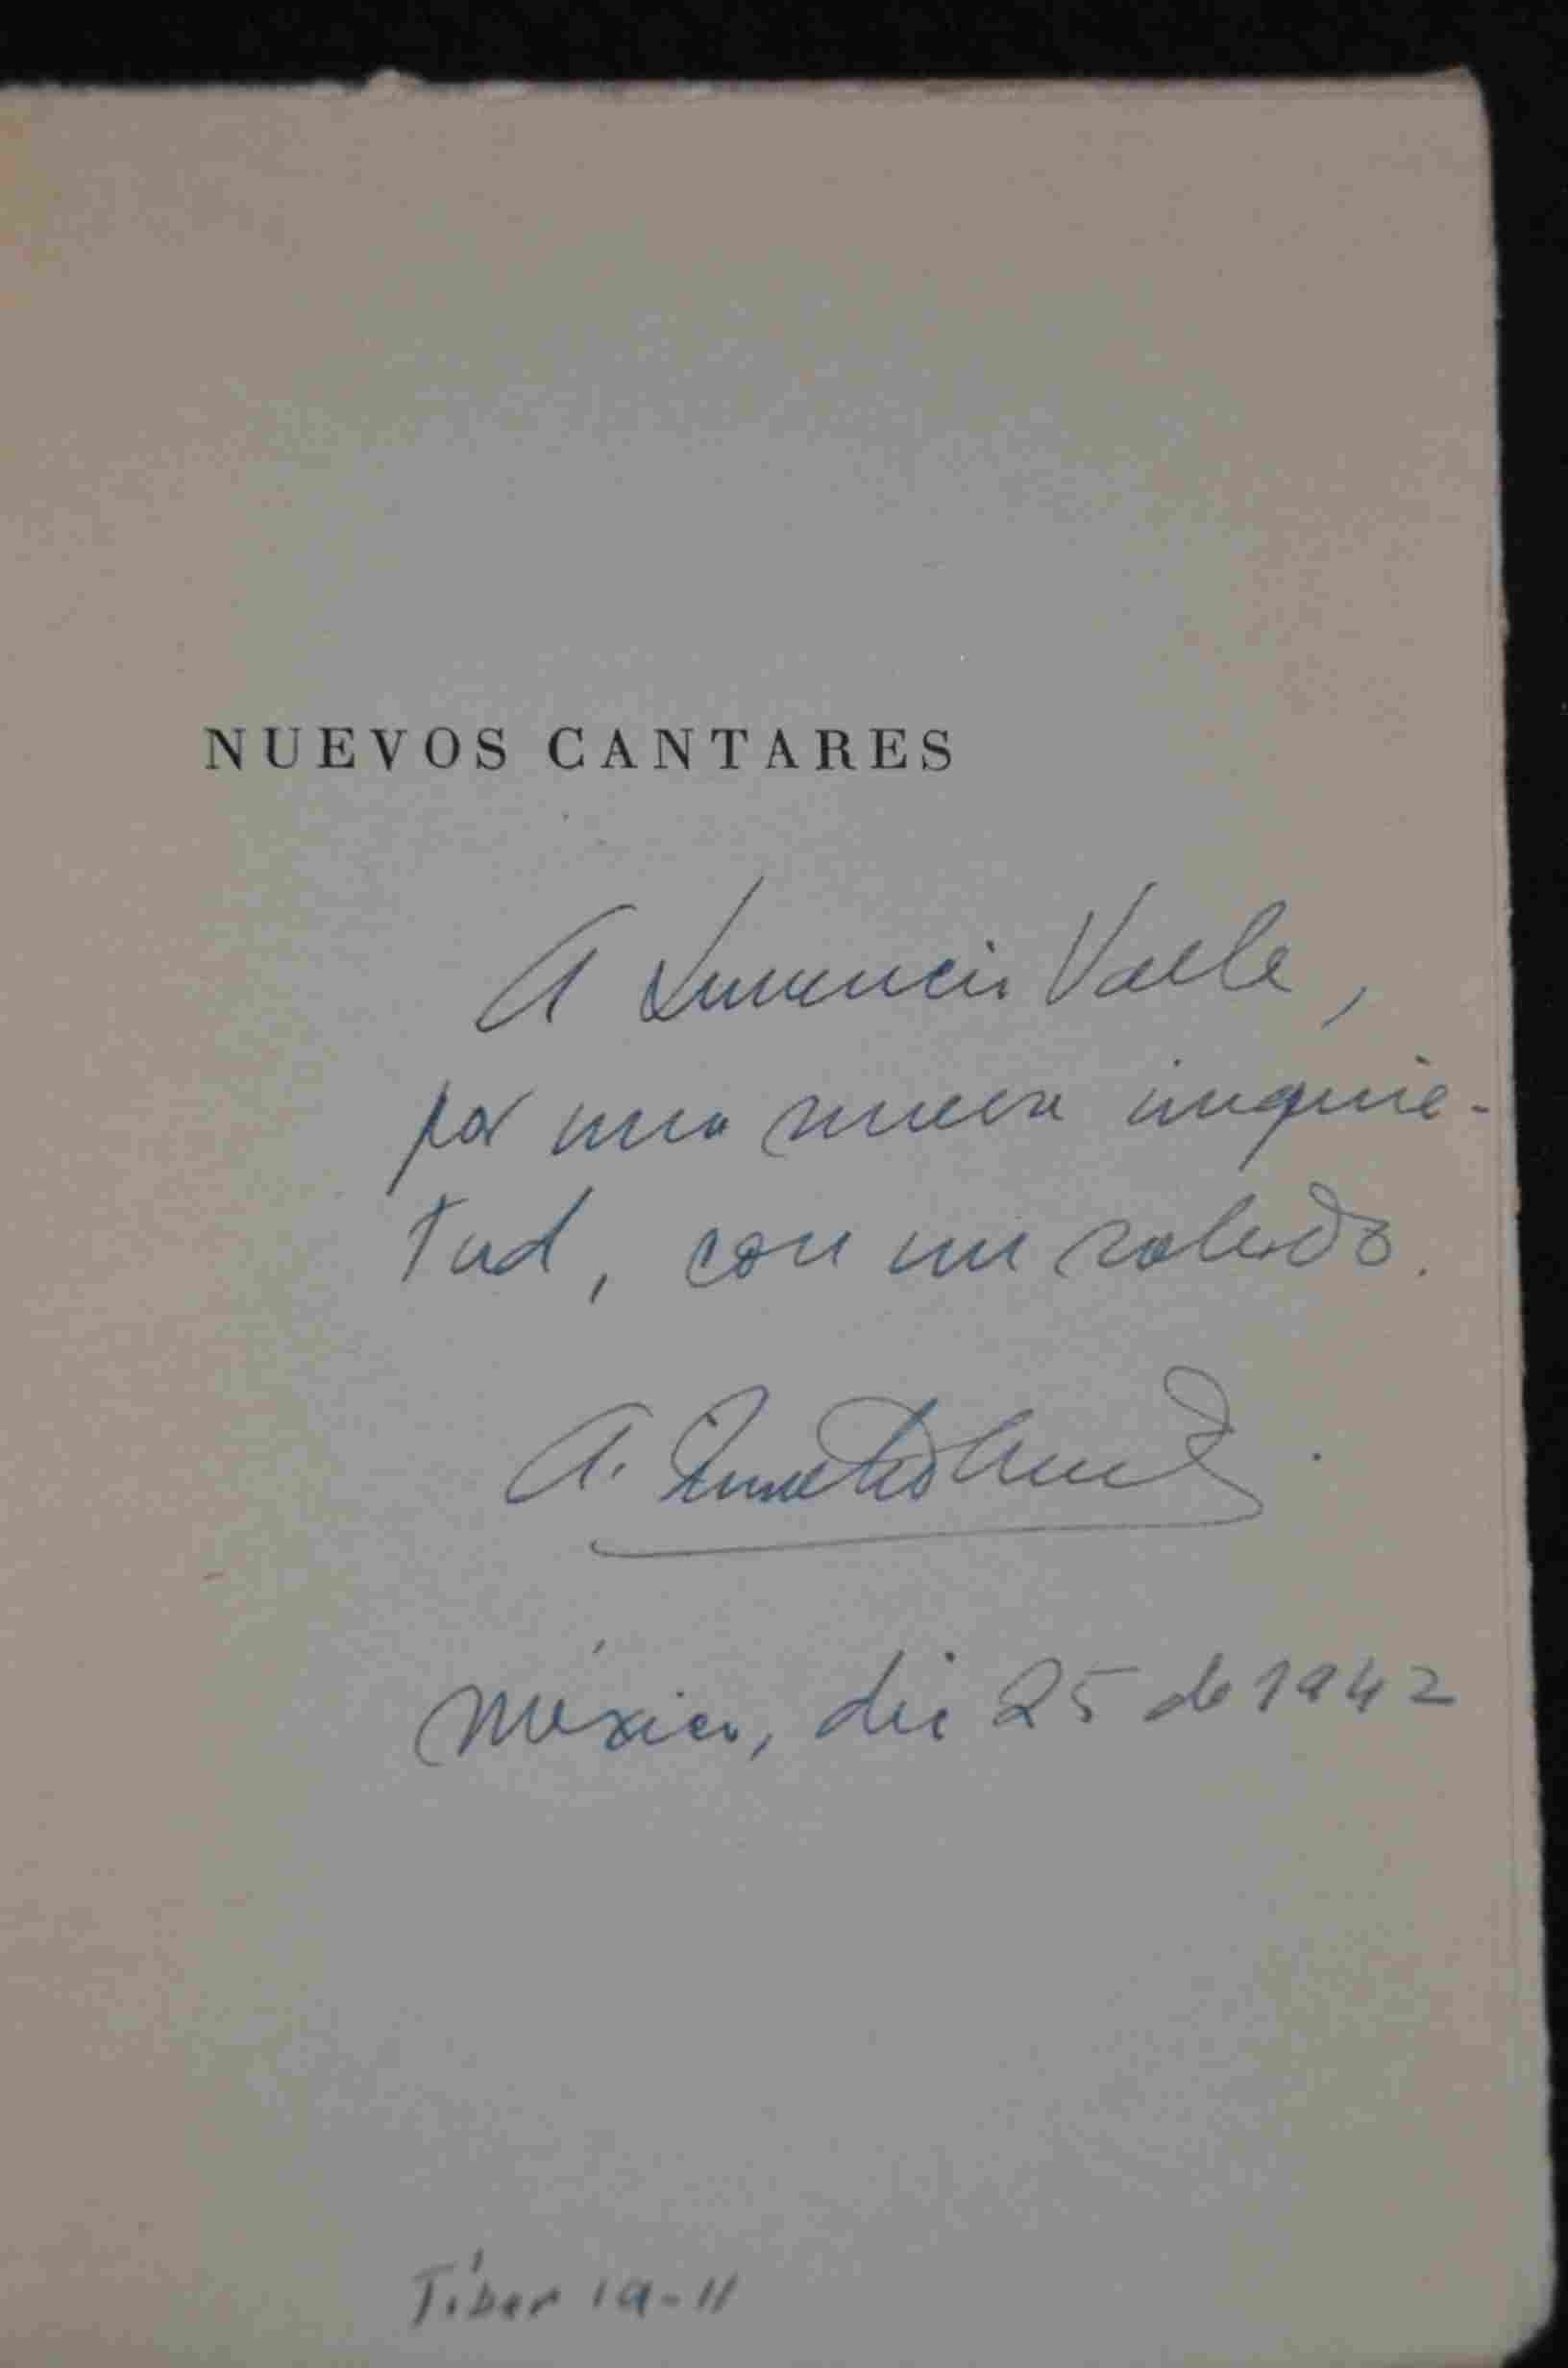 NUEVOS CANTARES
A Valle,
por una nueva inquie-
tud, con un saludo.
A.
México, dic 25 de 1942
Tíber 19-11